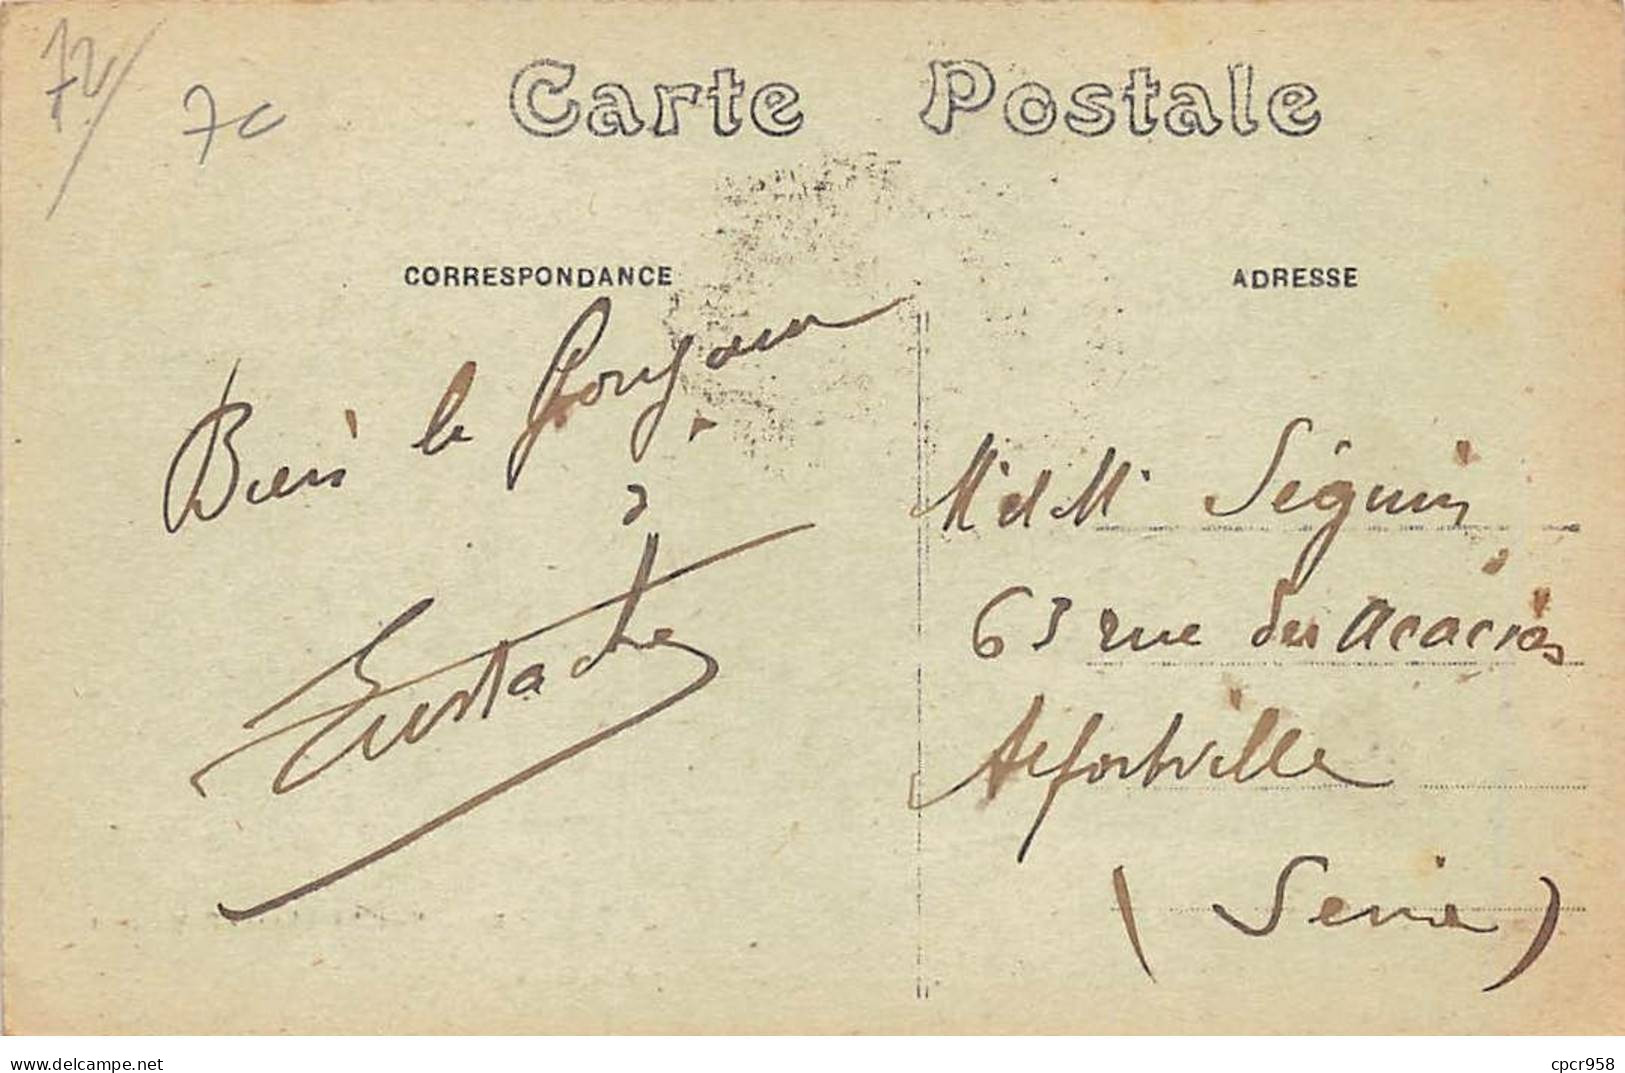 72/
7c
Carte Postale
CORRESPONDANCE
ADRESSE
Bien le Bonjour
à
Eustache
Mr et Mme Séguin
63 rue des Acacias
Alfortville
(Seine)
www.delcampe.net
cpcr958